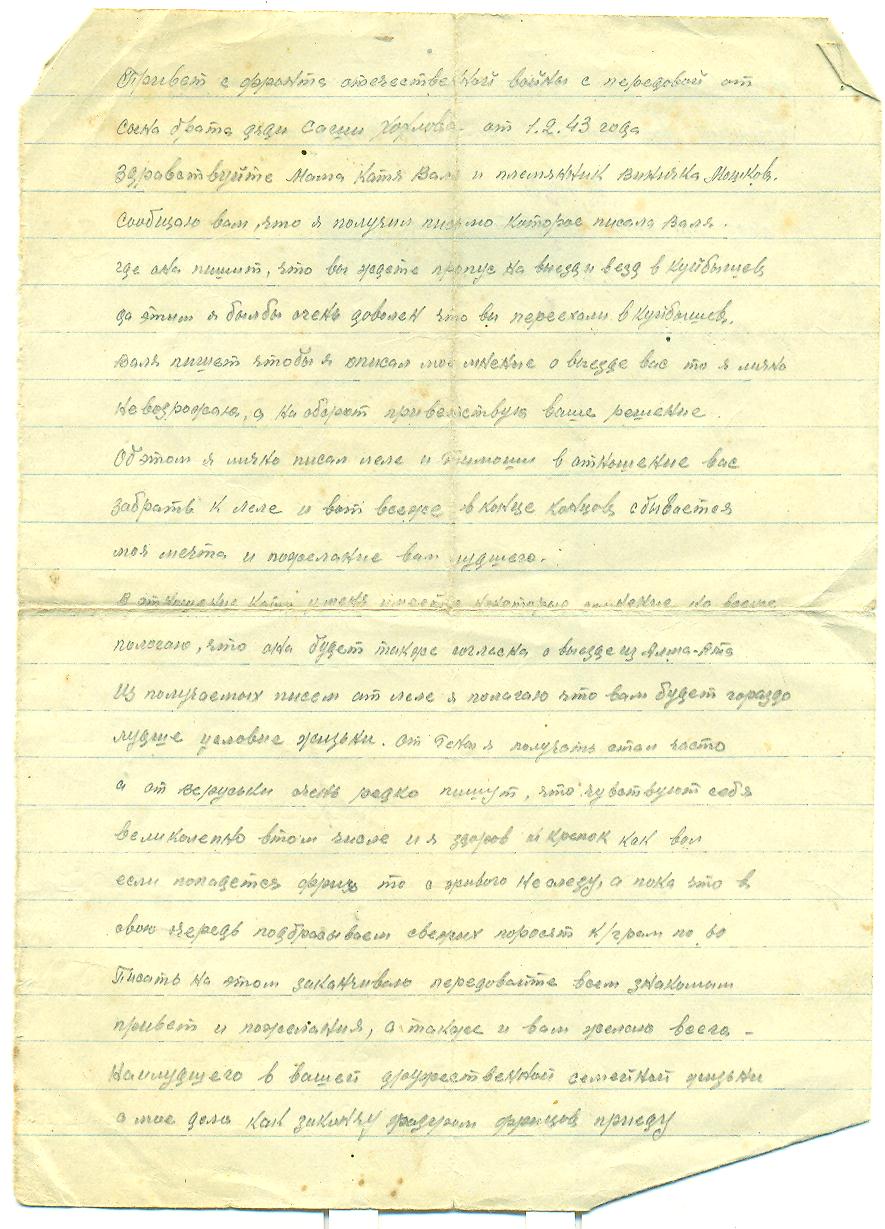 Привет с фронта отечественной войны с передовой от
сына брата дяди Саши Хохлова. от 1.2.43 года
Здравствуйте Мама Катя Валя и племянник Винияка Мошков.
Сообщаю вам, что я получил письмо которое писала Валя.
где она пишит, что вы ждете пропус на выезд и везд в Куйбышев
да этим я былбы очень доволен что вы переехали в Куйбышев.
Валя пишет чтобы я описал мое мнение о выезде вас то я лично
не возрожаю, а на оборот приветствую ваше решение.
Об этом я лично писал леле и Тимоши в отношение вас
забрать к леле и вот всеже в конце концов сбывается
моя мечта и пожелание вам лудшего.
В отношение Кати уменя имеется некоторые сомнение но всеже
пологаю, что она будет также согласна о выезде из Алма-Ата
Из получаемых писем от леле я полагаю что вам будет гораздо
лудше условие жизьни. От Гени я получать стал часто
а от Веруськи очень редко пишут, что чувствуют себя
великолепно втом числе и я здоров и крепок как вол
если попадется фриц то с живого неслезу, а пока что в
свою чередь подбрасываем свежих поросят к/грам по 80
Писать на этом заканчиваю передовайте всем знакомым
привет и пожелания, а также и вам желаю всего-
наилудшего в вашей дружественной семейной жизьни
а мое дело как закончу фрицов приеду